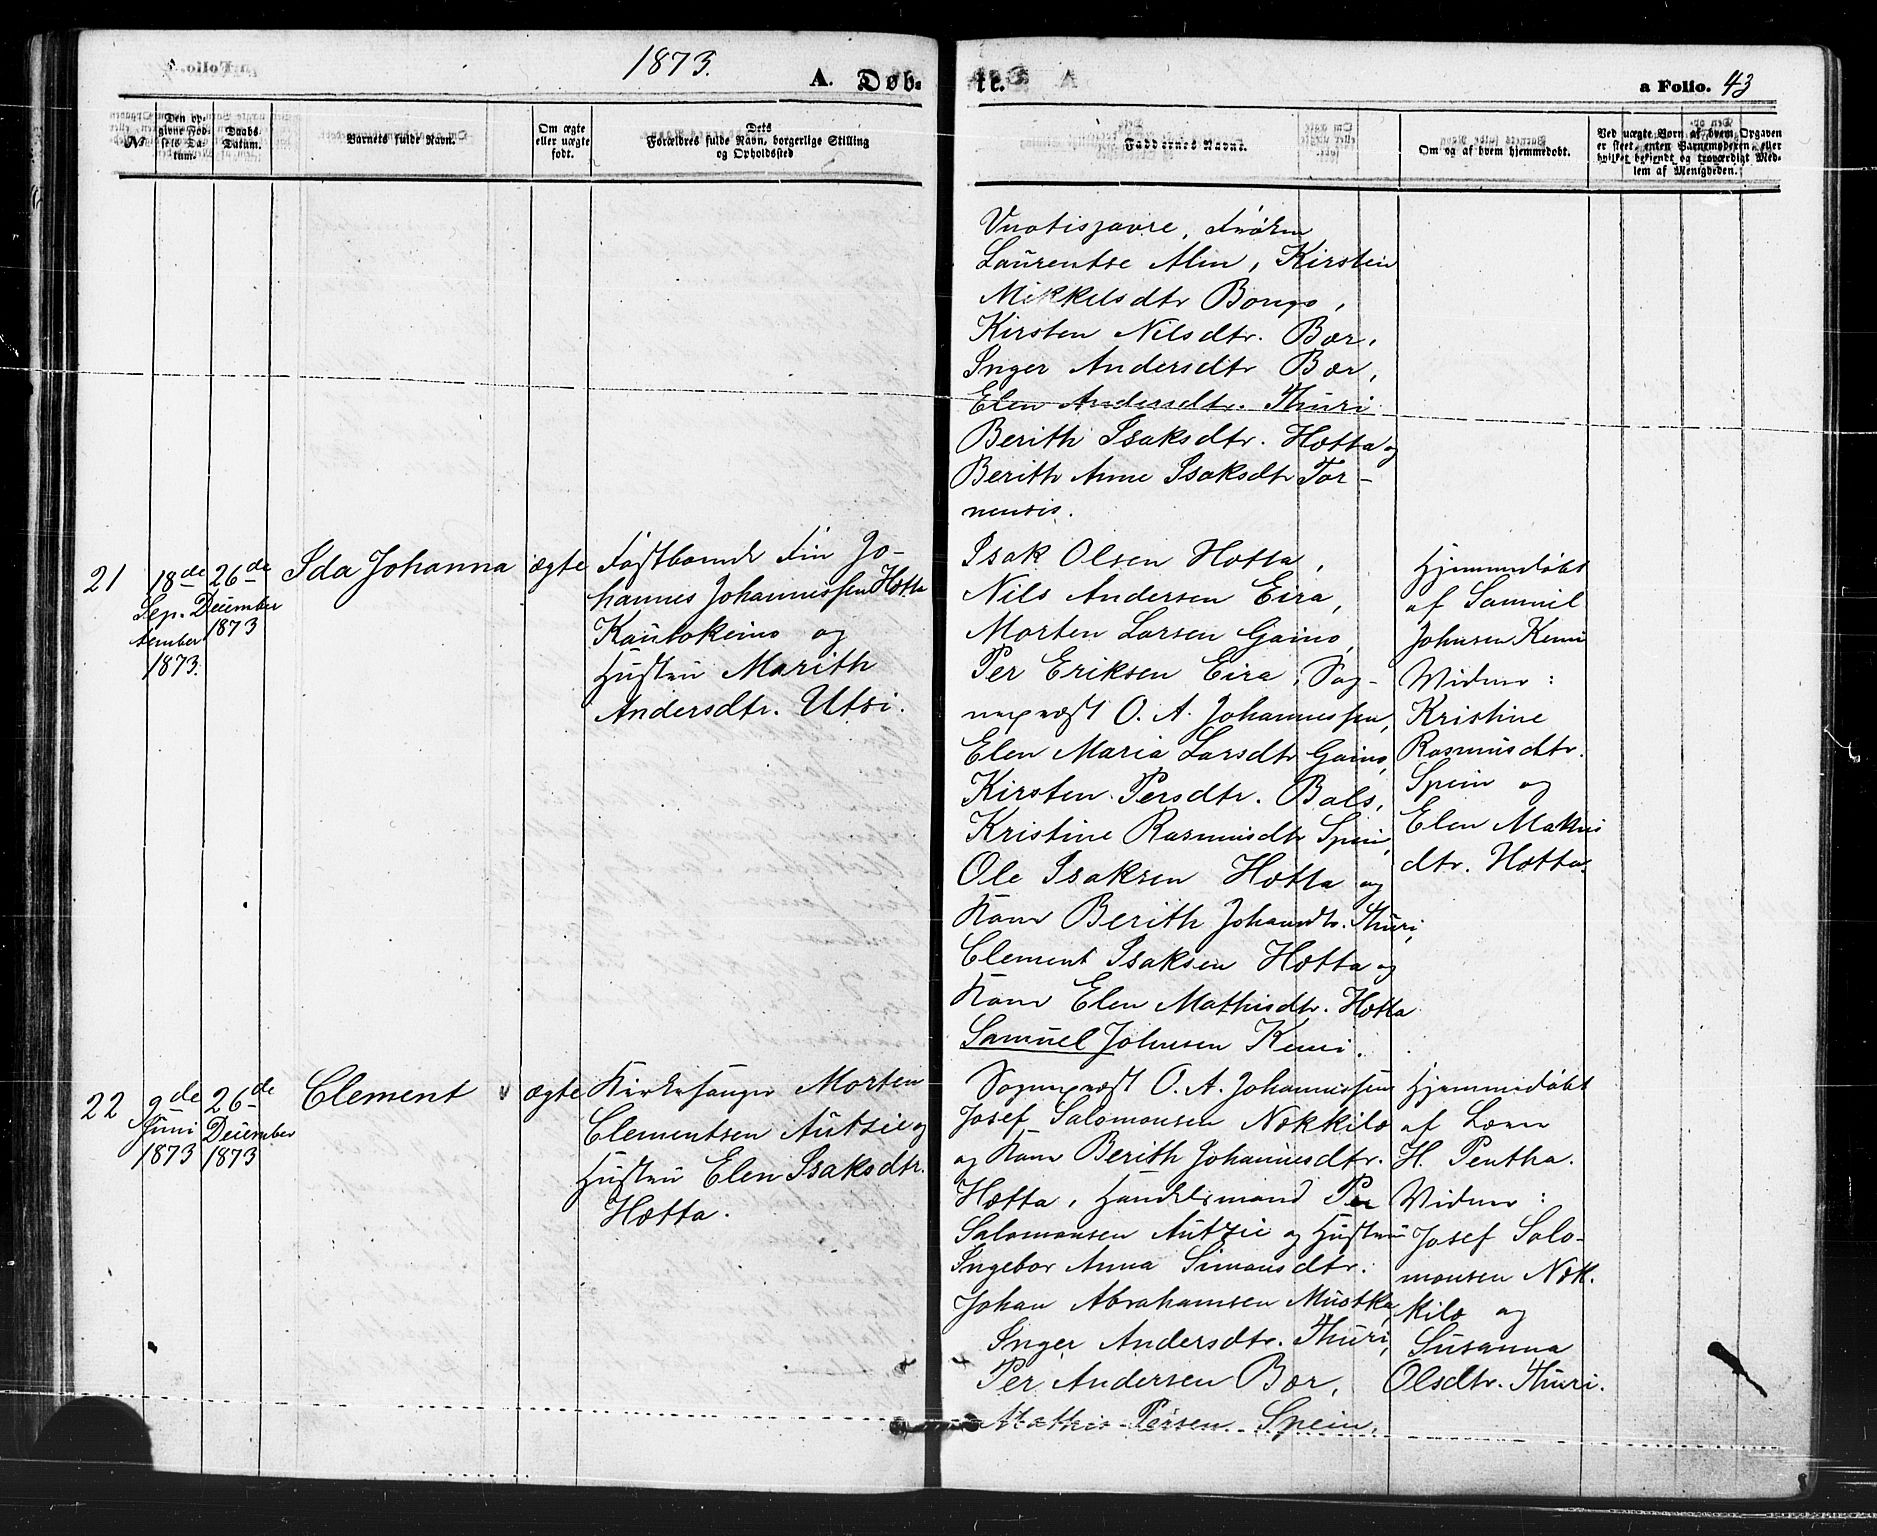 1873.
A. Døb-
te.
a Folio. 43
№
Den op-
givne Fød-
sels Da-
tum.
Daabs-
Datum.
Barnets fulde Navn.
Om ægte
eller uægte
født.
Dets
Forældres fulde Navn, borgerlige Stilling
og Opholdssted
Faddernes Navne.
Om og af hvem hjemmedøbt.
Ved uægte Børn af hvem Opgaven
er skeet, enten Barnemoderen eller
hvilket bekjendt og troværdigt Med-
lem af Menigheden.
Vuotisjavre, Frøken
Laurentse Alin, Kirsten
Mikkelsdtr Bongo,
Kirsten Nilsdtr. Bær,
Inger Andersdtr Bær,
Elen Andersdtr. Thuri
Berith Isaksdtr. Hætta og
Berith Anne Isaksdtr Tor-
nensis.
21
18de
Sep-
tember
1873.
26de
December
1873
Ida Johanna
ægte
Fastboende Fin Jo-
hannes Johannessen Hætta
Kautokeino og
Hustru Marith
Andersdtr. Utsi.
Isak Olsen Hætta,
Nils Andersen Eira,
Morten Larsen Gaino,
Per Eriksen Eira, Sog-
nepræst O. A. Johannessen,
Elen Maria Larsdtr Gaino,
Kirsten Persdtr. Bals,
Kristine Rasmusdtr Spein,
Ole Isaksen Hætta og
Kone Berith Johansdtr. Thuri,
Clement Isaksen Hætta og
Kone Elen Mathisdtr. Hætta
Samuel Johnsen Kemi.
Hjemmedøbt
af Samuel
Johnsen Kemi
Vidner:
Kristine
Rasmusdtr.
Spein og
Elen Mathis
dtr. Hætta.
22
9de
Juni
1873
26de
December
1873
Clement
ægte
Kirkesanger Morten
Clementsen Autzie og
Hustru Elen Isaksdtr.
Hætta.
Sognepræst O. A. Johannessen
Josef Salomonsen Nækkilæ
og Kone Berith Johannesdtr.
Hætta, Handelsmand Per
Salomonsen Autzie og Hustru
Ingebor Anna Simonsdtr.
Johan Abrahamsen Mustka,
Inger Andersdtr. Thuri,
Per Andersen Bær,
Mathis Persen Spein,
Hjemmedøbt
af Lærer
H. Pentha.
Vidner:
Josef Salo-
monsen Næk.
kilæ og
Susanna
Olsdtr. Thuri.